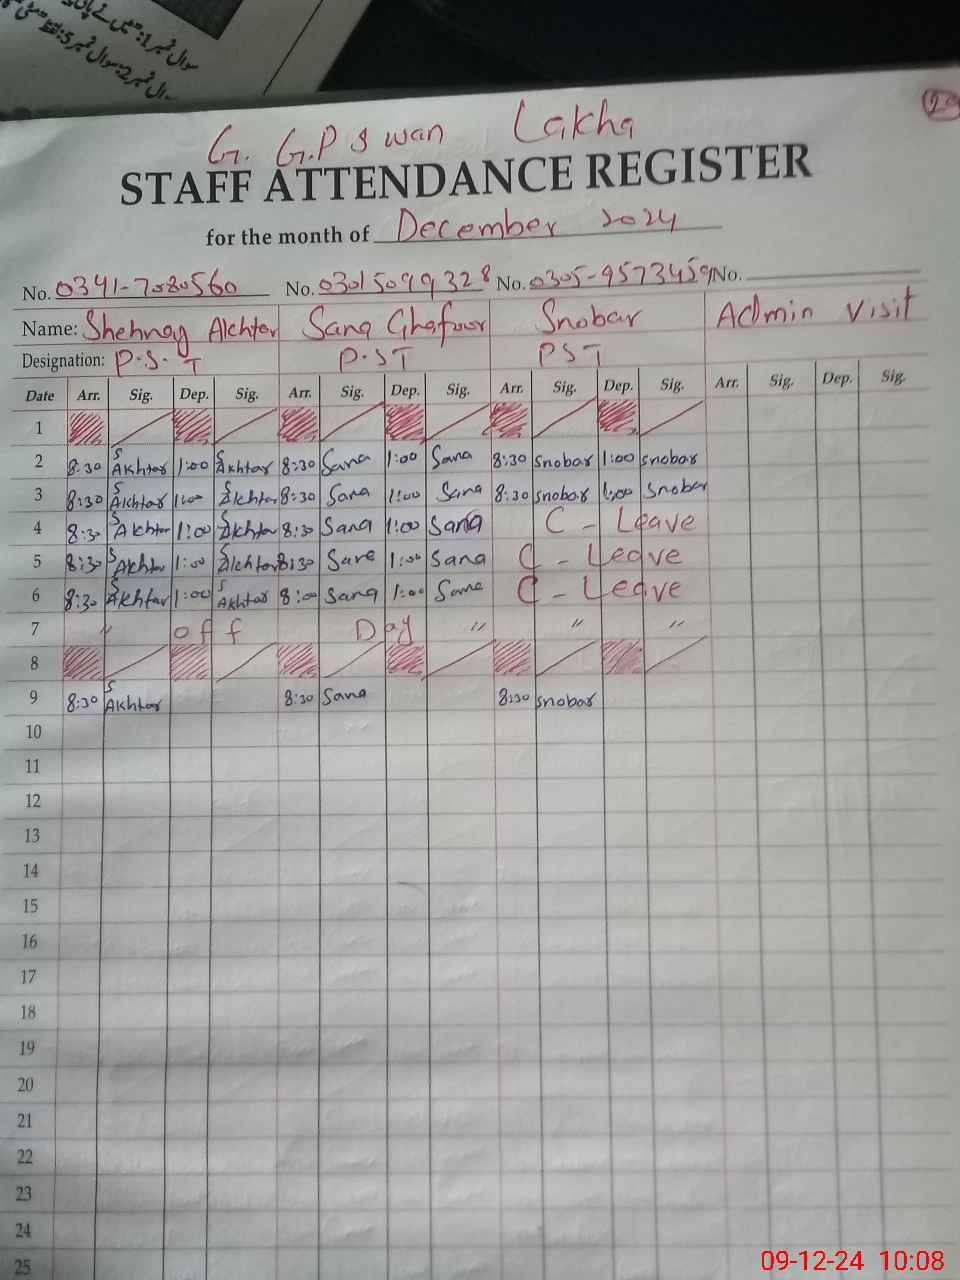 سوال نمبر 1:
سوال نمبر 2: سوال نمبر 5:
G. G.P S wan Lakha
STAFF ATTENDANCE REGISTER
for the month of December 2024
No. 0341-7080560 No. 03015099328 No. 0305-9573459 No.
Name: Shehnay Akhtar Sana Ghafoor Snobar Admin Visit
Designation: P.S.T P.ST PST
Date Arr. Sig. Dep. Sig. Arr. Sig. Dep. Sig. Arr. Sig. Dep. Sig. Arr. Sig. Dep. Sig.
1
2 8:30 S Akhtar 1:00 S Akhtar 8:30 Sana 1:00 Sana 8:30 snobar 1:00 snobar
3 8:30 S Akhtar 1:00 S Akhtar 8:30 Sana 1:00 Sana 8:30 snobar 1:00 snobar
4 8:30 S Akhtar 1:00 S Akhtar 8:30 Sana 1:00 Sana C - Leave
5 8:30 S Akhtar 1:00 S Akhtar 8:30 Sana 1:00 Sana C - Leave
6 8:30 S Akhtar 1:00 S Akhtar 8:00 Sana 1:00 Sana C - Leave
7 " off Day " " "
8
9 8:30 S Akhtar 8:30 Sana 8:30 snobar
10
11
12
13
14
15
16
17
18
19
20
21
22
23
24
25
09-12-24 10:08